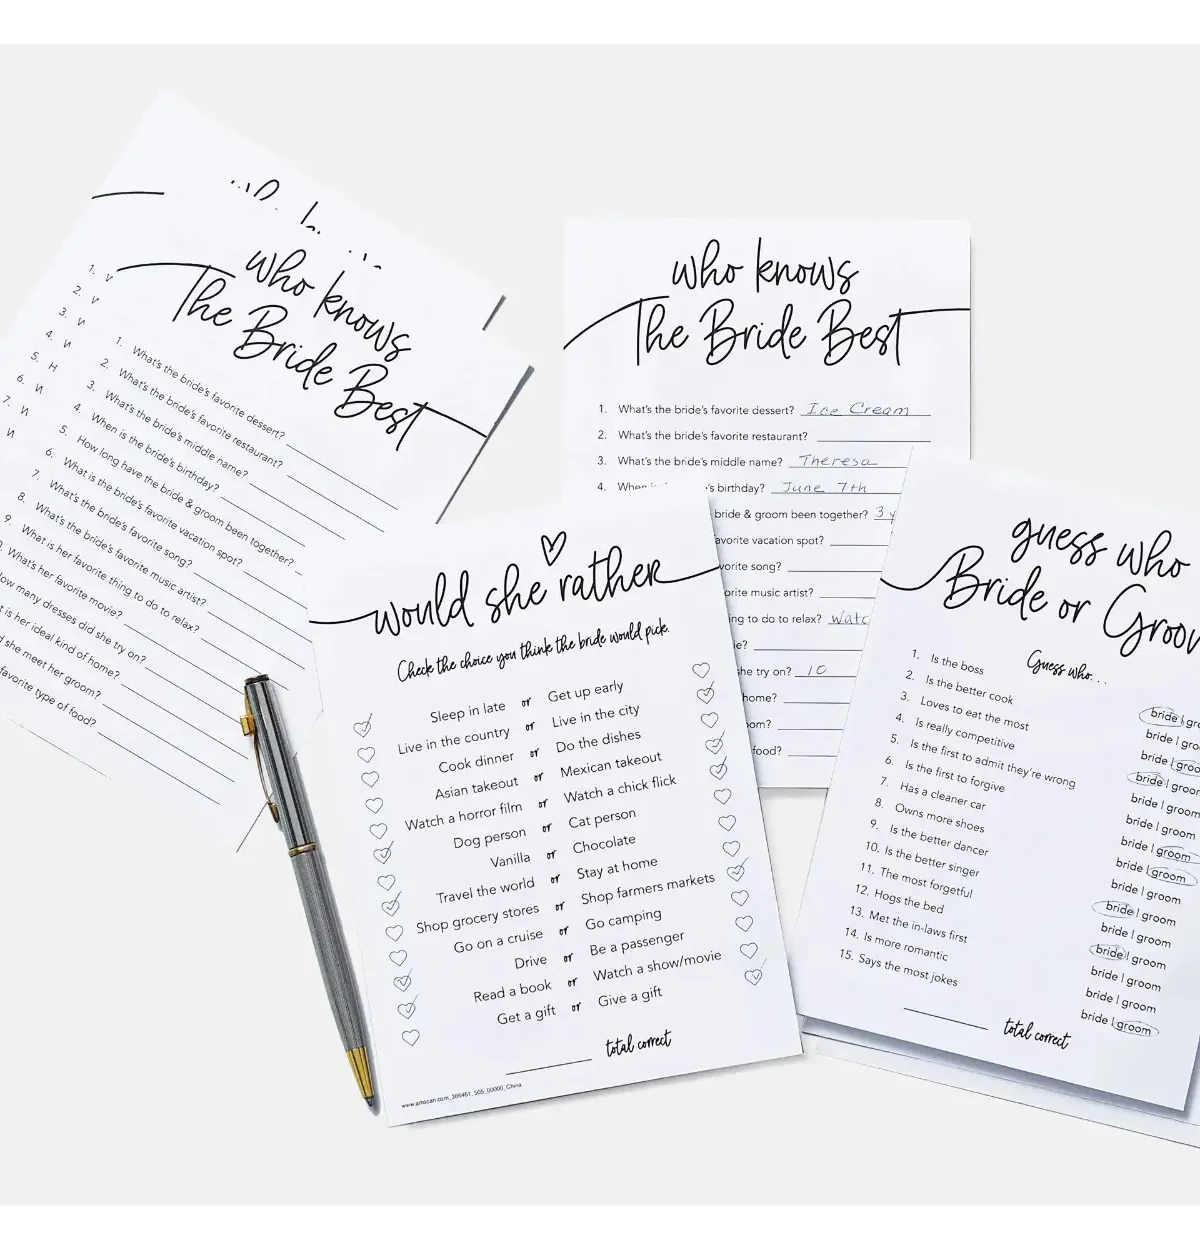 who knows
The Bride Best
1. What's the bride's favorite dessert?
2. What's the bride's favorite restaurant?
3. What's the bride's middle name?
4. When is the bride's birthday?
5. How long have the bride & groom been together?
6. What is the bride's favorite vacation spot?
7. What's the bride's favorite song?
8. What's the bride's favorite music artist?
9. What is her favorite thing to do to relax?
What's her favorite movie?
How many dresses did she try on?
t is her ideal kind of home?
d she meet her groom?
favorite type of food?
1.
2.
3.
4.
5. H
6.
7.
who knows
The Bride Best
1. What's the bride's favorite dessert? Ice Cream
2. What's the bride's favorite restaurant?
3. What's the bride's middle name? Theresa
4. When 's birthday? June 7th
bride & groom been together? 3 y
avorite vacation spot?
vorite song?
orite music artist?
ing to do to relax? Watc
ie?
he try on? 10
home?
om?
food?
would she rather
Check the choice you think the bride would pick.
Sleep in late or Get up early
Live in the country or Live in the city
Cook dinner or Do the dishes
Asian takeout or Mexican takeout
Watch a horror film or Watch a chick flick
Dog person or Cat person
Vanilla or Chocolate
Travel the world or Stay at home
Shop grocery stores or Shop farmers markets
Go on a cruise or Go camping
Drive or Be a passenger
Read a book or Watch a show/movie
Get a gift or Give a gift
total correct
www.amscan.com_366461_505_00000_China
guess who
Bride or Groo
Guess who...
1. Is the boss bride | gr
2. Is the better cook bride | gro
3. Loves to eat the most bride | groo
4. Is really competitive bride | groo
5. Is the first to admit they're wrong bride | groom
6. Is the first to forgive bride | groom
7. Has a cleaner car bride | groom
8. Owns more shoes bride | groom
9. Is the better dancer bride | groom
10. Is the better singer bride | groom
11. The most forgetful bride | groom
12. Hogs the bed bride | groom
13. Met the in-laws first bride | groom
14. Is more romantic bride | groom
15. Says the most jokes bride | groom
total correct